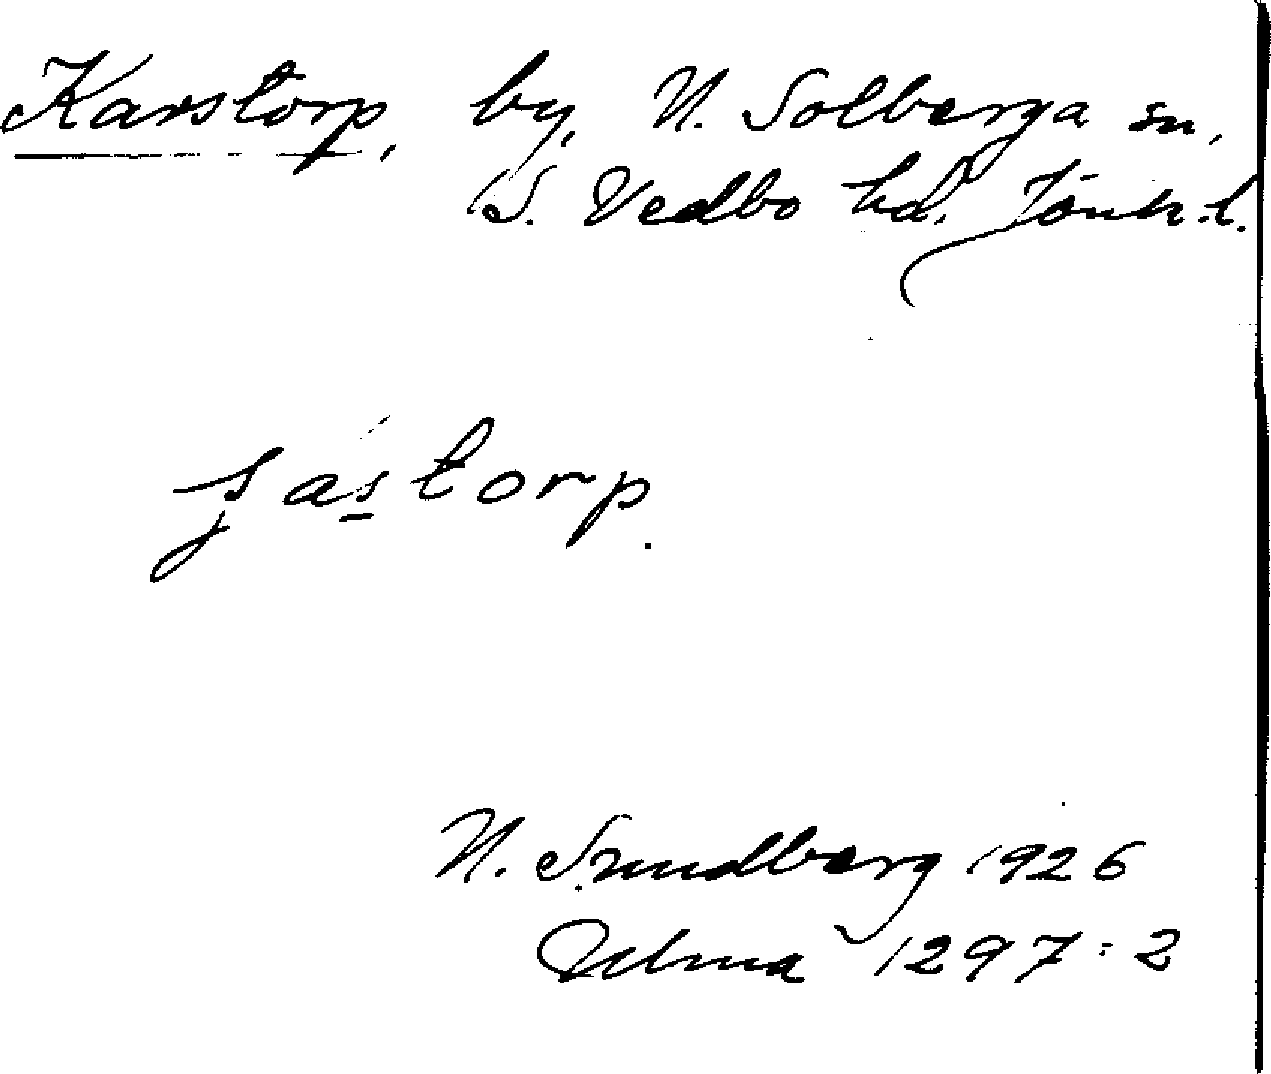 Karstorp, by, N. Solberga sn,
S. Vedbo hd. Jönk. l.
N. Sundberg 1926
Ulma 1297:2